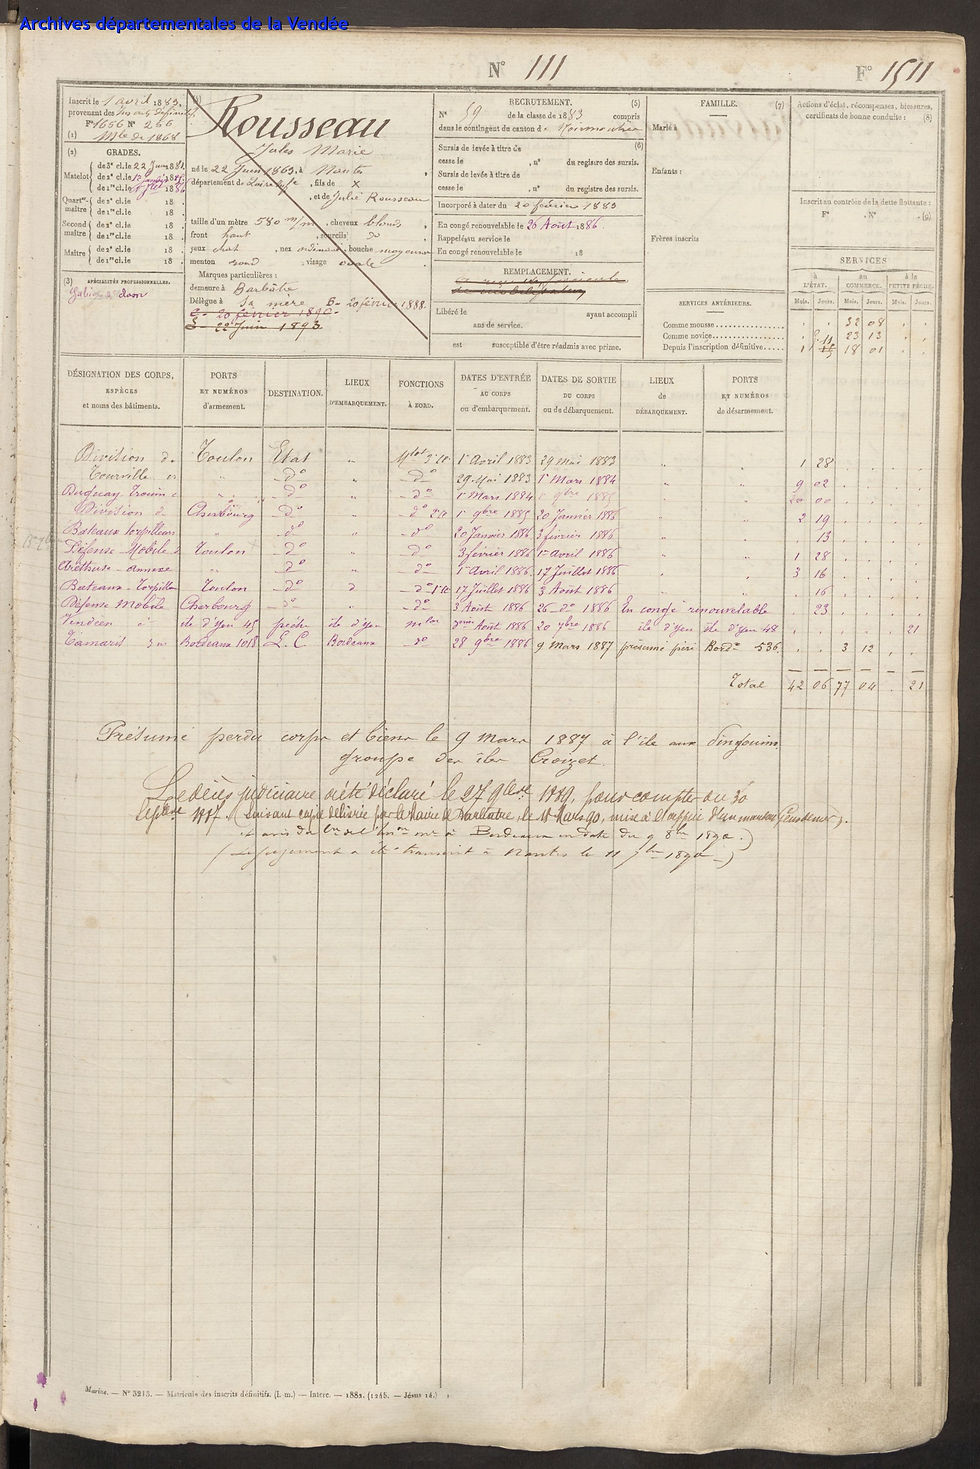 Archives départementales de la Vendée
N° 111
F° 1511
Inscrit le 1 avril 1883
provenant des
F° 1656 N° 266
(1)
(2) GRADES.
Matelot de 3e cl. le 22 Juin 188
de 2e cl. le 188
de 1re cl. le 1886
Quartr-maître de 2e cl. le 18
de 1re cl. le 18
Second maître de 2e cl. le 18
de 1re cl. le 18
Maître de 2e cl. le 18
de 1re cl. le 18
(3) SPÉCIALITÉS PROFESSIONNELLES.
Rousseau
Jules Marie
né le 22 Juin 1863, à Nantes
département de Loire Infre, fils de X
, et de Julie Rousseau
taille d'un mètre 580 m/m, cheveux blonds
front haut, sourcils do
yeux chat, nez ordinaire, bouche moyenne
menton rond, visage ovale
Marques particulières :
demeure à Barbâtre
Délégue à sa mère 6 - 20 février 1888.
20 février 1890
22 Juin 1893
RECRUTEMENT. (5)
N° 59 de la classe de 1883 compris
dans le contingent du canton de Noirmoutier
Sursis de levée à titre de (6)
cesse le , n° du registre des sursis.
Sursis de levée à titre de
cesse le , n° du registre des sursis.
Incorporé à dater du 20 février 1883
En congé renouvelable le 26 Août 1886
Rappelé au service le
En congé renouvelable le 18
REMPLACEMENT.
Libéré le ayant accompli
ans de service.
est susceptible d'être réadmis avec prime.
FAMILLE. (7)
Marié à
Enfants :
Frères inscrits
SERVICES ANTÉRIEURS.
Comme mousse
Comme novice
Depuis l'inscription définitive
Actions d'éclat, récompenses, blessures,
certificats de bonne conduite : (8)
Inscrit au contrôle de la dette flottante :
F° , N° . (9)
SERVICES
à L'ÉTAT. au COMMERCE. à la PETITE PÊCHE.
Mois. Jours. Mois. Jours. Mois. Jours.
32 08
23 13
18 01
DÉSIGNATION DES CORPS, ESPÈCES et noms des bâtiments.
PORTS ET NUMÉROS d'armement.
DESTINATION.
LIEUX D'EMBARQUEMENT.
FONCTIONS À BORD.
DATES D'ENTRÉE AU CORPS ou d'embarquement.
DATES DE SORTIE DU CORPS ou de débarquement.
LIEUX de DÉBARQUEMENT.
PORTS ET NUMÉROS de désarmement.
Division de Toulon Etat " Mlot 3e cl. 1r Avril 1883 29 mai 1883 1 28
Tourville " do " do 29 Mai 1883 1r Mars 1884 9 02
Duguay Trouin " do " do 1r Mars 1884 1r 9bre 1885 20 00
Division de Cherbourg do " do 2e cl. 1r 9bre 1885 20 Janvier 1886 2 19
Bateaux torpilleurs do " do 20 Janvier 1886 3 février 1886 13
Défense Mobile de Toulon do " do 3 février 1886 1r Avril 1886 1 28
Aréthuse - annexe " do " do 1r Avril 1886 17 Juillet 1886 3 16
Bateaux - Torpilleurs Toulon do " do 1e cl. 17 Juillet 1886 3 Août 1886 16
Défense Mobile Cherbourg do " do 3 Août 1886 26 do 1886 En congé renouvelable 23
Vendéen île d'Yeu 45 pêche île d'Yeu mlot Août 1886 20 7bre 1886 île d'Yeu île d'Yeu 48 21
Tamaris Bordeaux 1018 L. C Bordeaux do 28 9bre 1886 9 mars 1887 présumé péri Bordx 536 3 12
Total 42 06 77 04 . 21
Présumé perdu corps et biens le 9 mars 1887 à l'île aux Pingouins
groupe des îles Crozet.
Le décès judiciaire a été déclaré le 27 9bre 1889, pour compter du 30
septbre 1887. (Suivant copie délivrée par le Maire de Barbâtre, le 18 Mars 90, mise à l'appui d'un mandat).
et avis du à Bordeaux en date du 9 8bre 1890.)
(Le jugement a été transcrit à Nantes le 11 1890)
Marine. — N° 3213. — Matricule des inscrits définitifs. (I. m.) — Interc. — 1882. (1245. — Jésus 14.)